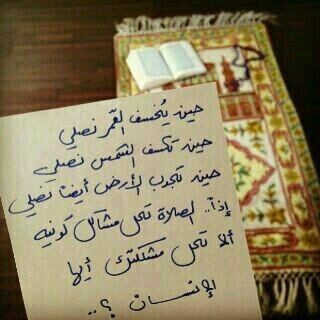 حين يُخسف القمر نصلي
حين تكسف الشمس نصلي
حين تجدب الأرض أيضاً نصلي
إذاً.. الصلاة تحل مشاكل كونيه
ألا تحل مشكلتك أيها
الإنسان ؟..